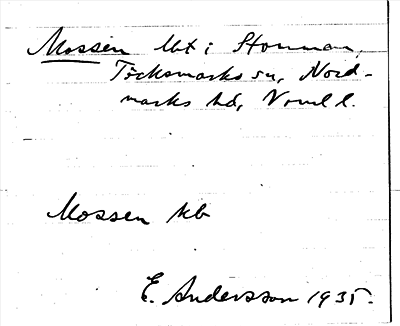 Mossen lht i Stommen,
Töcksmarks sn, Nord-
marks hd, Vrml l.
Mossen kb
E. Andersson 1935.